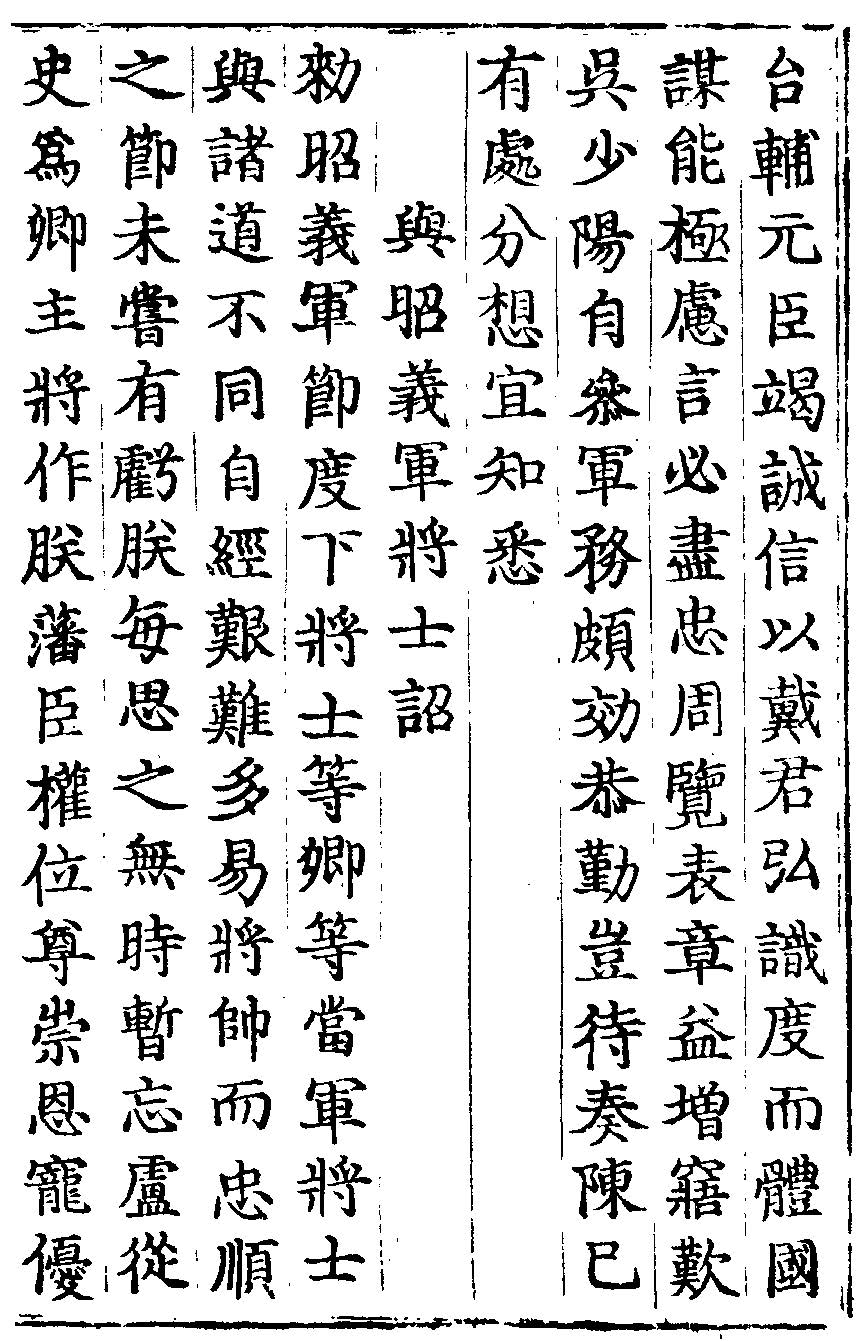 台輔元臣竭誠信以戴君弘識度而體國
謀能極慮言必盡忠周覽表章益增寤歎
吳少陽自叅軍務頗効恭勤豈待奏陳已
有處分想宜知悉
與昭義軍將士詔
勑昭義軍節度下將士等卿等當軍將士
與諸道不同自經艱難多易將帥而忠順
之節未嘗有虧朕每思之無時暫忘盧從
史爲卿主將作朕藩臣權位尊崇恩寵優